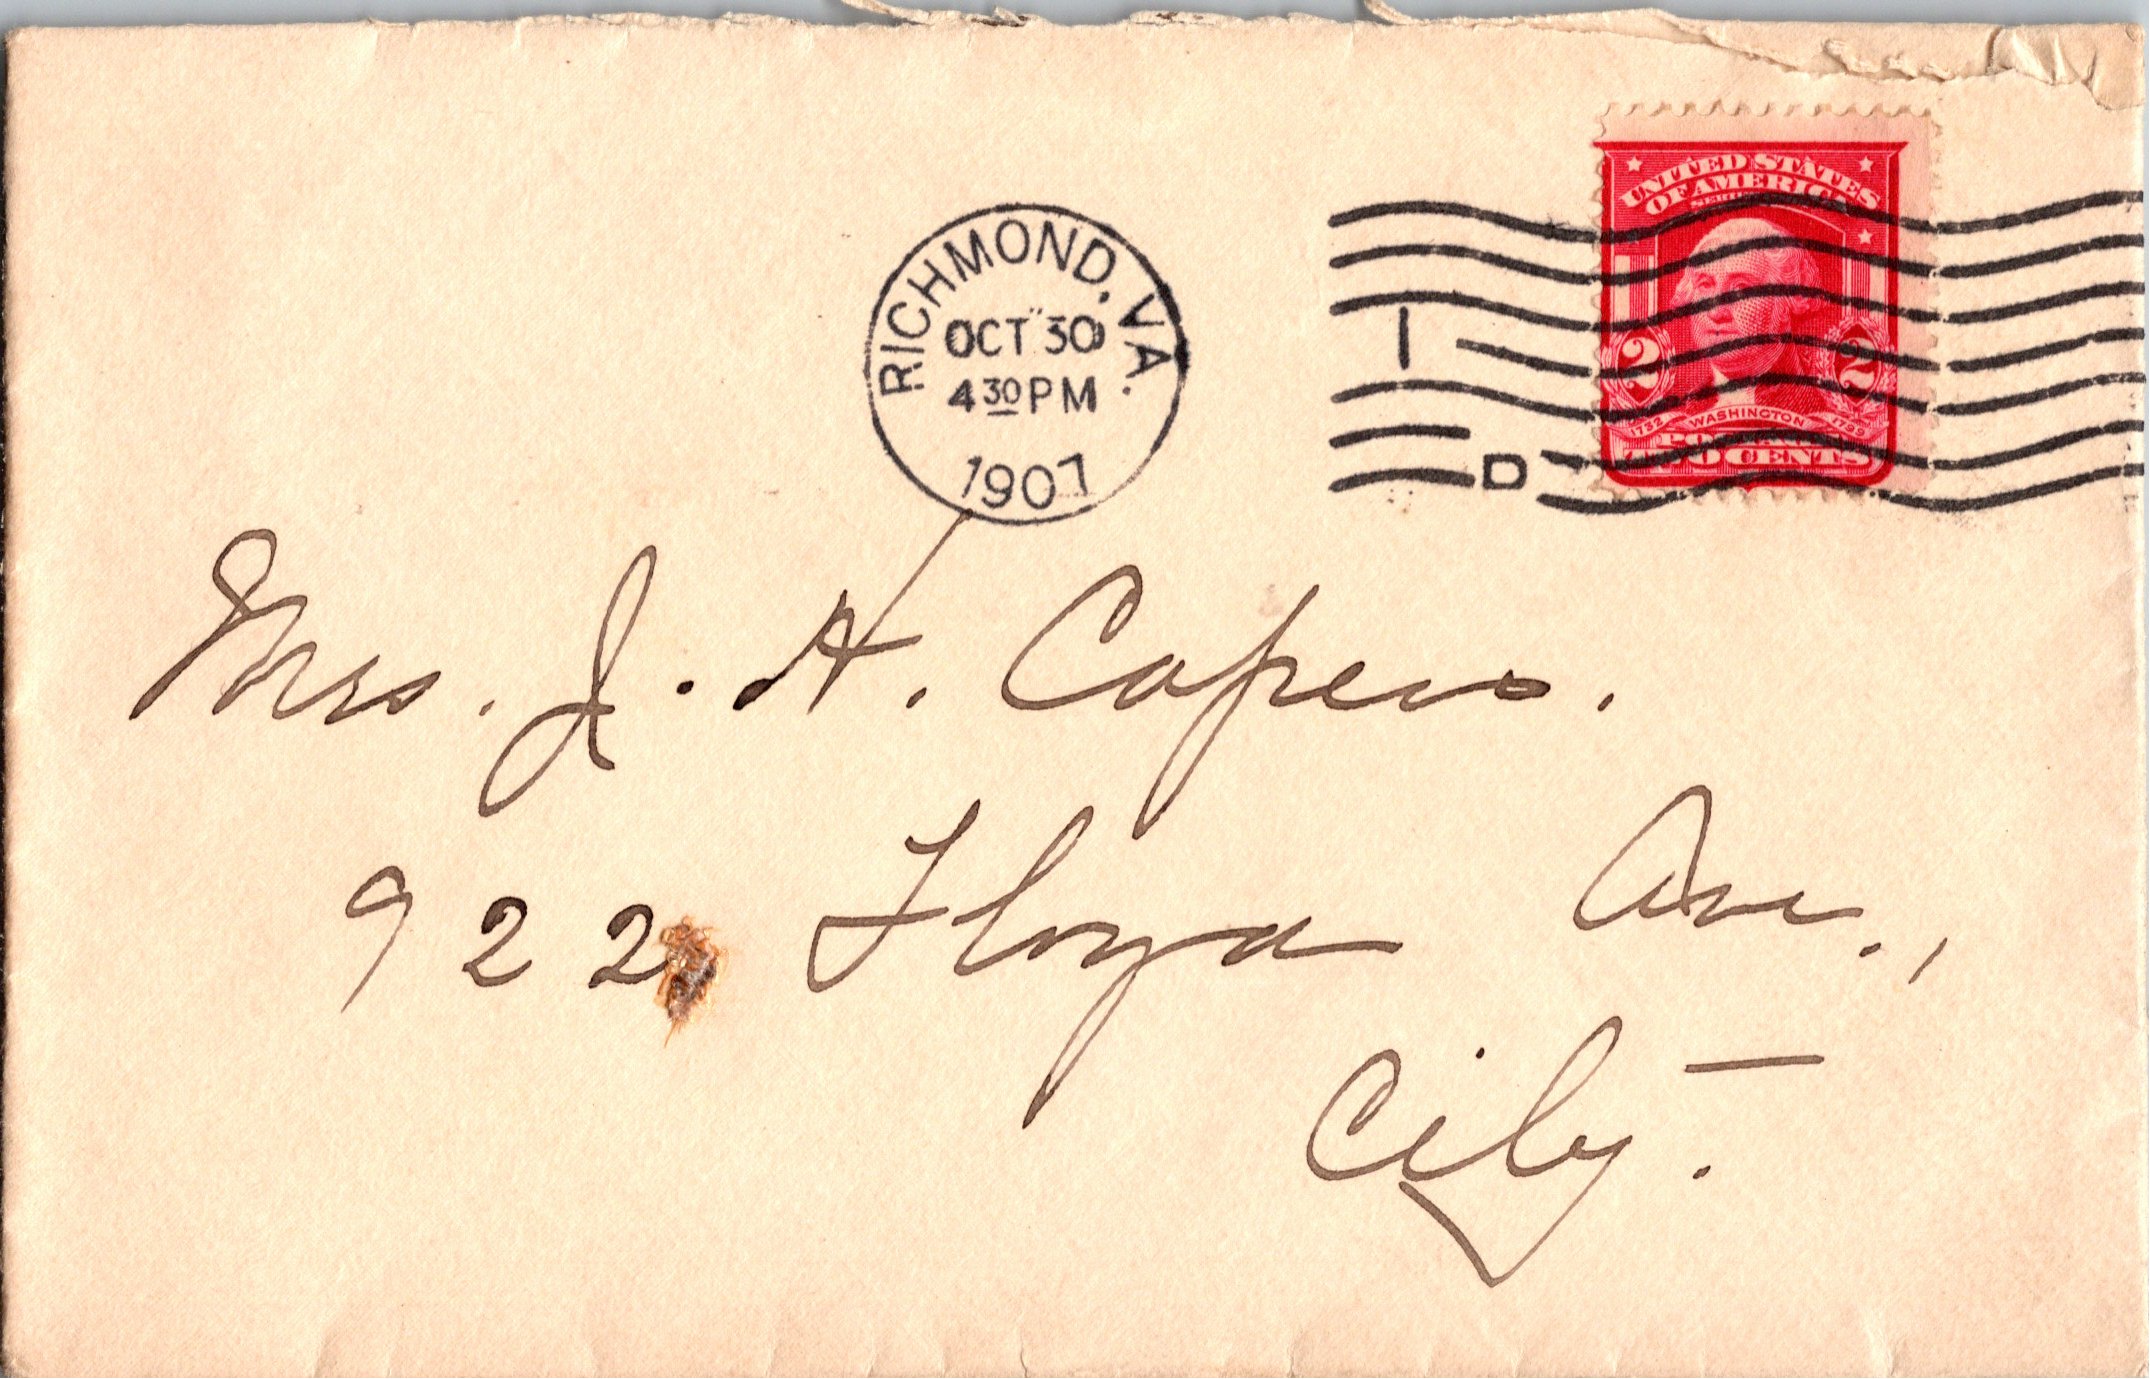 RICHMOND, VA.
OCT 30
4 30 PM
1907
1
D
UNITED STATES
OF AMERICA
2 2
1732 WASHINGTON 1799
TWO CENTS
Mrs. J. H. Capers.
922 Floyd Ave.,
City.